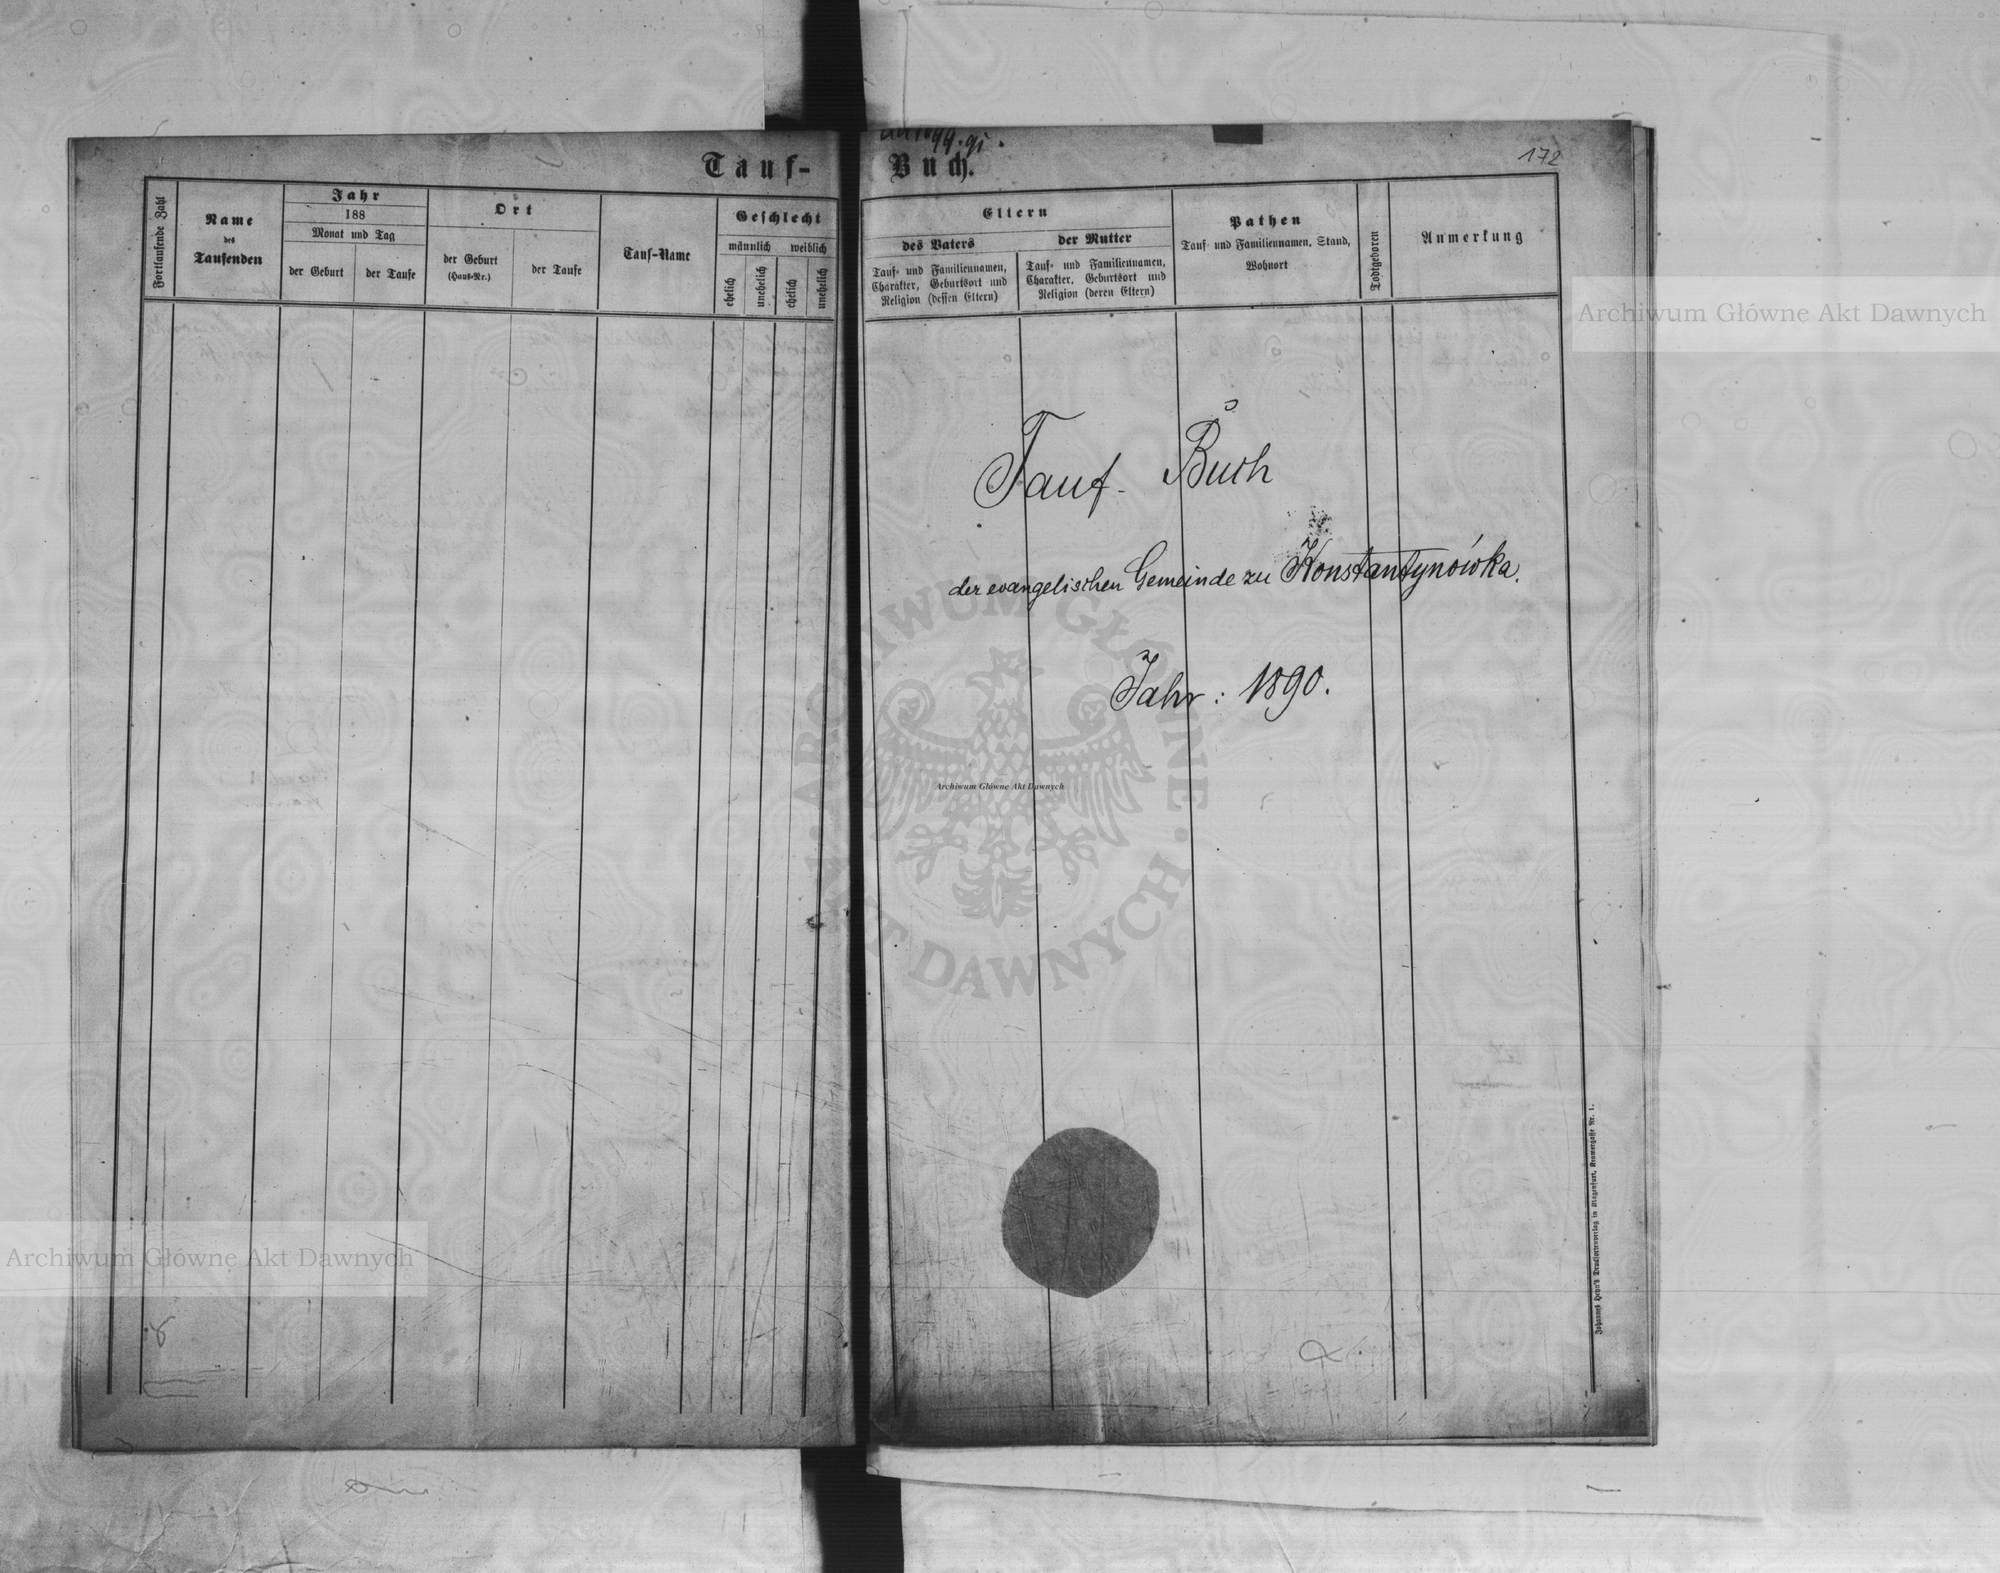 Tauf-
Fortlaufende Zahl
Name
des
Taufenden
Jahr
188
Monat und Tag
der Geburt
der Taufe
Ort
der Geburt
(Haus-Nr.)
der Taufe
Tauf-Name
Geschlecht
männlich weiblich
ehelich
unehelich
ehelich
unehelich
Buch.
172
Eltern
des Vaters
Tauf- und Familiennamen,
Charakter, Geburtsort und
Religion (dessen Eltern)
der Mutter
Tauf- und Familiennamen,
Charakter, Geburtsort und
Religion (deren Eltern)
Pathen
Tauf- und Familiennamen, Stand,
Wohnort
Todtgeboren
Anmerkung
Archiwum Główne Akt Dawnych
Tauf- Buch
der evangelischen Gemeinde zu Konstantynówka.
Jahr: 1890.
ARCHIWUM GŁÓWNE · AKT DAWNYCH ·
Archiwum Główne Akt Dawnych
Archiwum Główne Akt Dawnych
Johannes Heyn's Drucksortenverlag in Klagenfurt, Kramergasse Nr. 1.